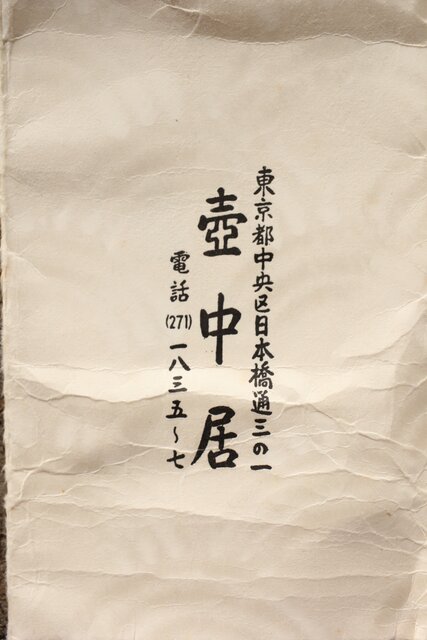 東京都中央区日本橋通三の一
壺中居
電話(271)一八三五〜七